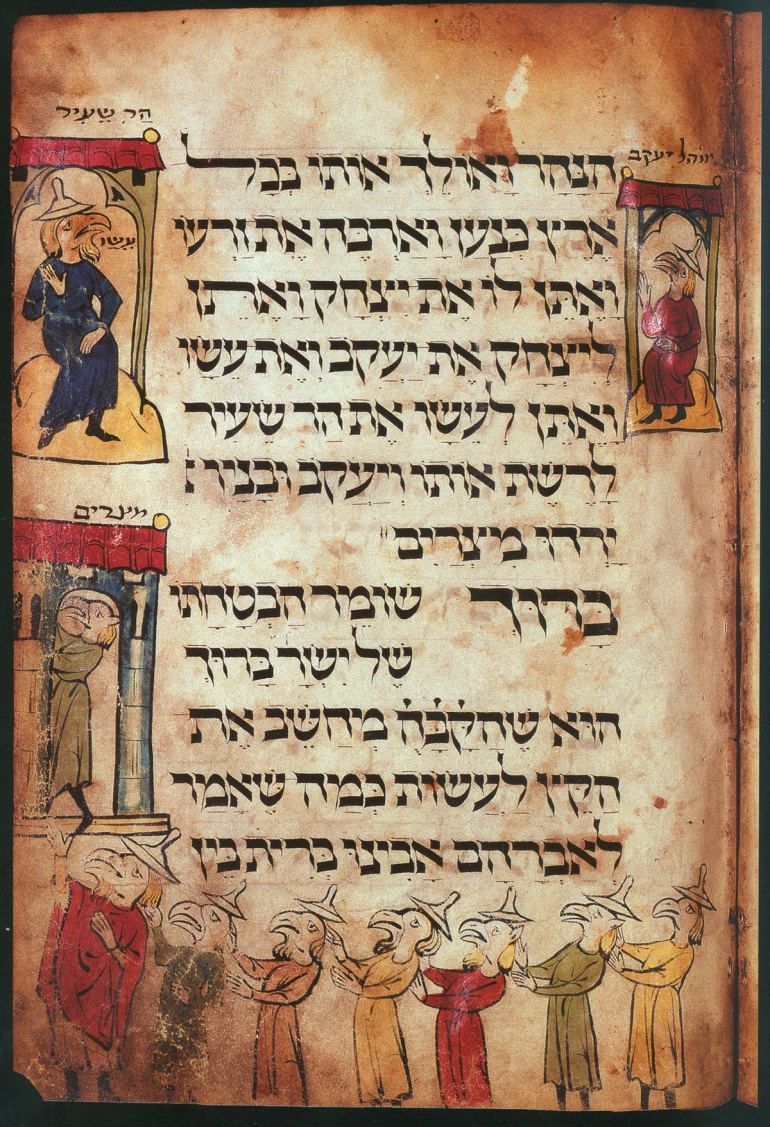 הר שעיר
אוהל יעקב
עשו
הנהר ואולך אותו בכל
ארץ כנען וארבה את זרעו
ואתן לו את יצחק ואתן
ליצחק את יעקב ואת עשו
ואתן לעשו את הר שעיר
לרשת אותו ויעקב ובניו
מצרים
ירדו מצרים
ברוך שומר הבטחתו
של ישר ברוך
הוא שהקבה מחשב את
הקץ לעשות כמה שאמר
לאברהם אבינו ברית בין